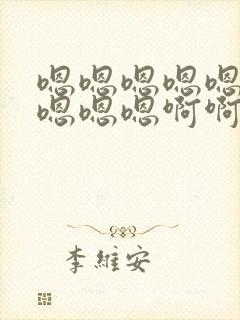 嗯嗯嗯嗯嗯
嗯嗯嗯啊啊
李維安